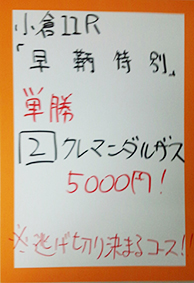 小倉11R
「早鞆特別」
単勝
2 クレマンダルザス
5000円!
※逃げ切り決まるコース!!